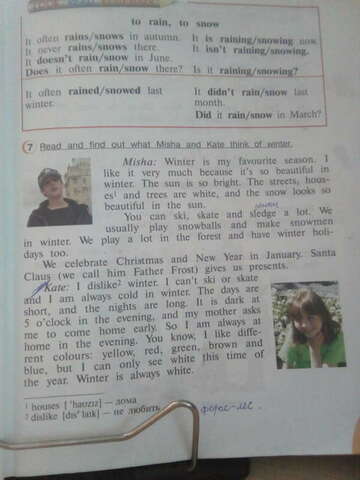 to rain, to snow
It often rains/snows in autumn. It is raining/snowing now.
It never rains/snows there. It isn't raining/snowing.
It doesn't rain/snow in June.
Does it often rain/snow there? Is it raining/snowing?
It often rained/snowed last winter. It didn't rain/snow last month.
Did it rain/snow in March?
7 Read and find out what Misha and Kate think of winter.
Misha: Winter is my favourite season. I
like it very much because it's so beautiful in
winter. The sun is so bright. The streets, hous-
es1 and trees are white, and the snow looks so
beautiful in the sun.
You can ski, skate and sledge a lot. We
usually play snowballs and make snowmen
in winter. We play a lot in the forest and have winter holi-
days too.
We celebrate Christmas and New Year in January. Santa
Claus (we call him Father Frost) gives us presents.
Kate: I dislike2 winter. I can't ski or skate
and I am always cold in winter. The days are
short, and the nights are long. It is dark at
5 o'clock in the evening, and my mother asks
me to come home early. So I am always at
home in the evening. You know, I like diffe-
rent colours: yellow, red, green, brown and
blue, but I can only see white this time of
the year. Winter is always white.
1 houses ['haʊzɪz] — дома
2 dislike [dɪs'laɪk] — не любить